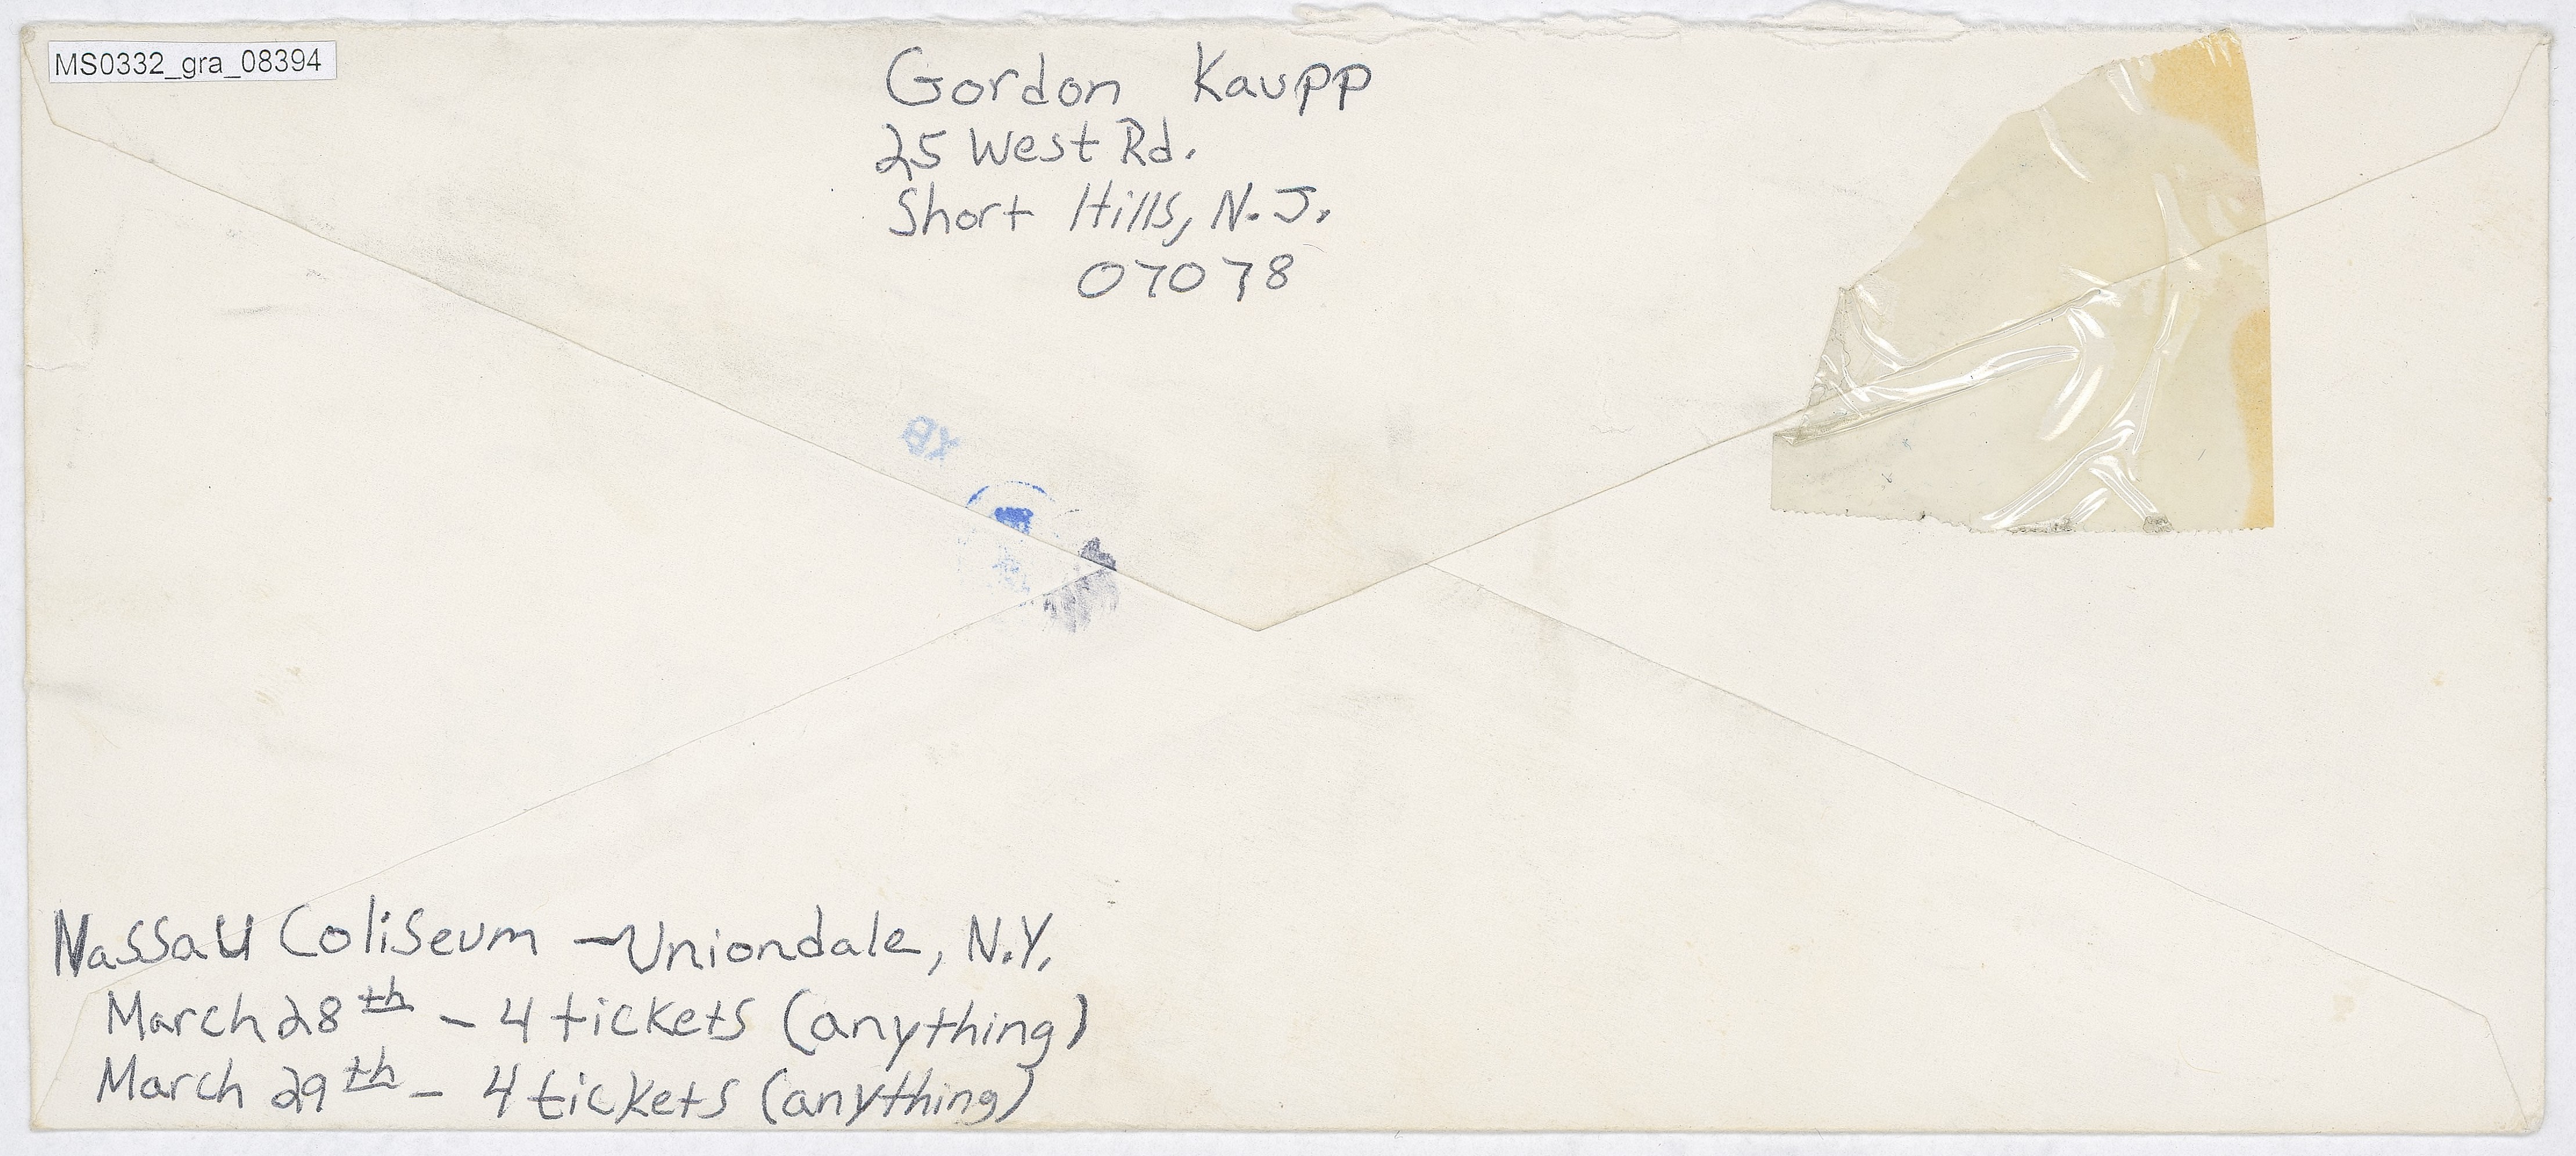 MS0332_gra_08394
Gordon Kaupp
25 West Rd.
Short Hills, N.J.
07078
Nassau Coliseum - Uniondale, N.Y.
March 28th - 4 tickets (anything)
March 29th - 4 tickets (anything)